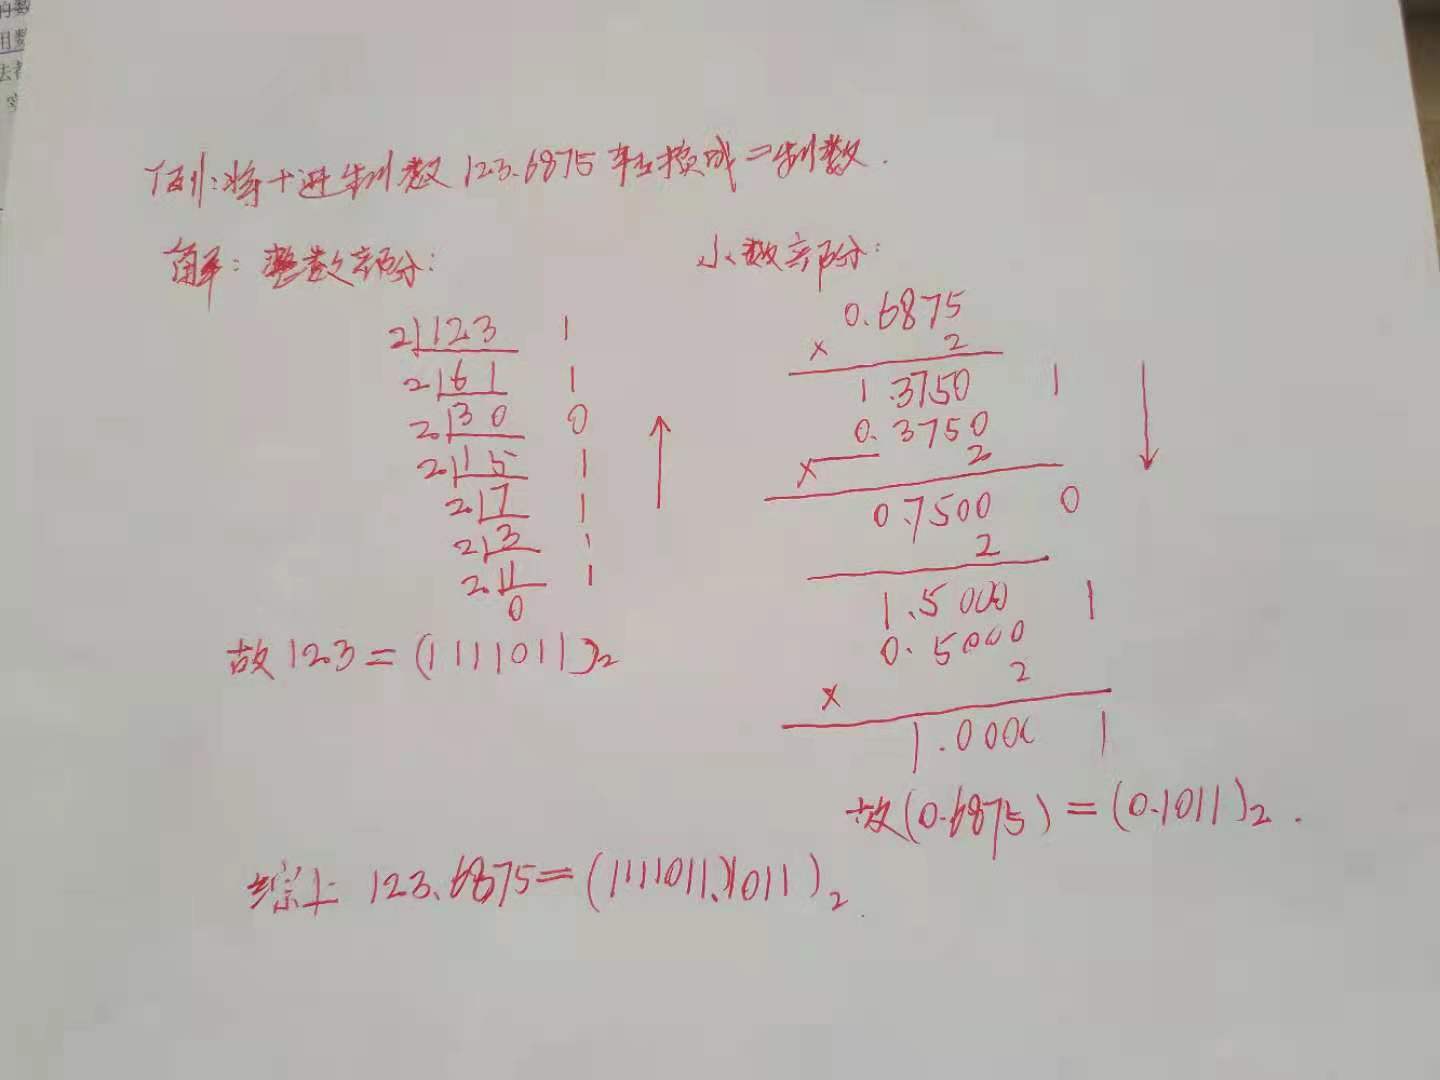 例:将十进制数 123.6875 转换成二制数.
解: 整数部分:
2 123 1
2 61 1
2 30 0
2 15 1
2 7 1
2 3 1
2 1 1
0
故 123 = (1111011)2
小数部分:
0.6875
× 2
1.3750 1
0.3750
× 2
0.7500 0
2
1.5000 1
0.5000
× 2
1.000 1
故(0.6875) = (0.1011)2 .
综上 123.6875 = (1111011.1011)2 .